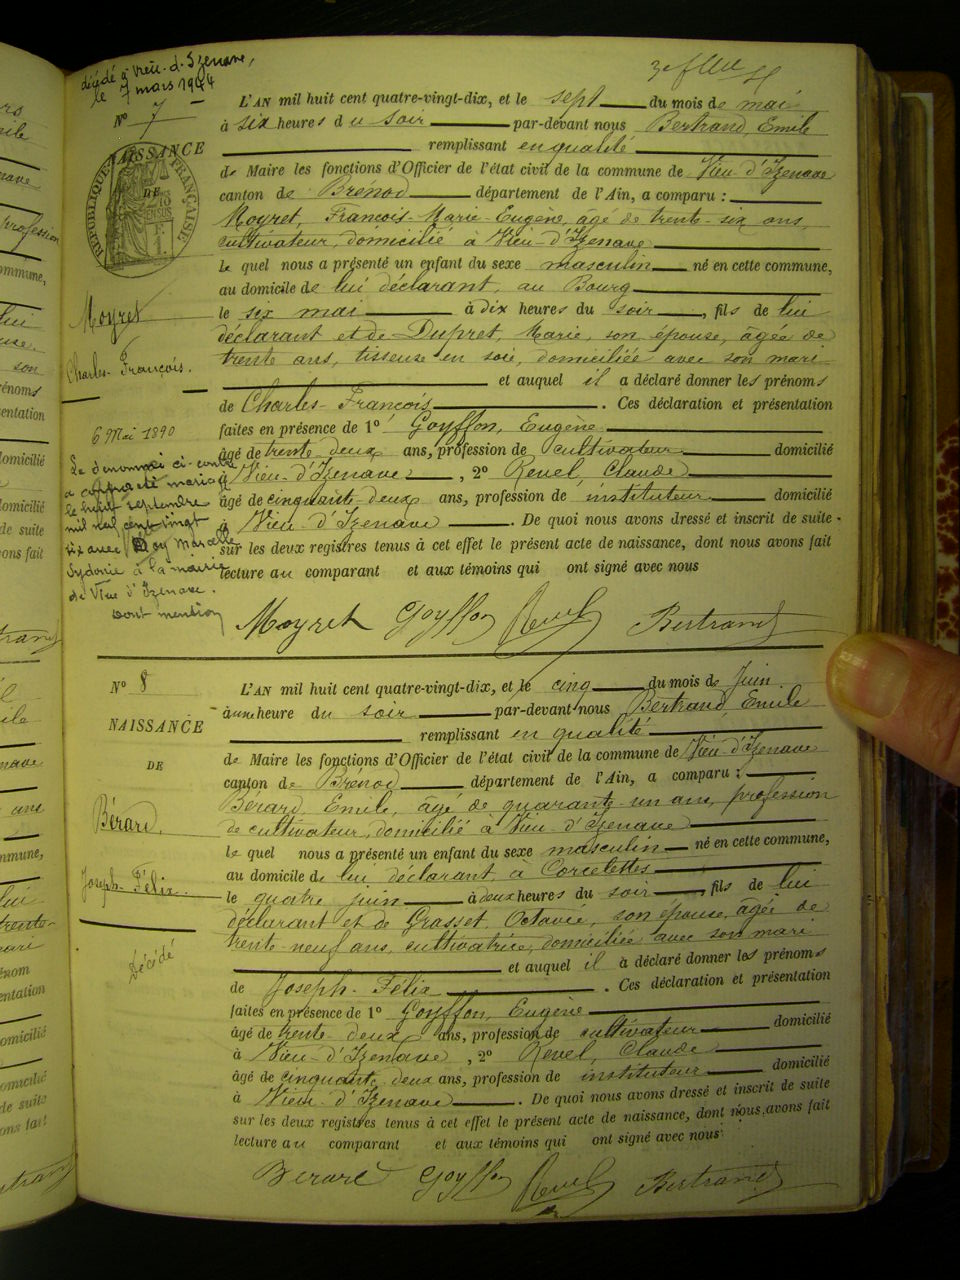 décédé à Vieu-d-Izenave,
le 7 mars 1944
Nº 7
NAISSANCE
DE
RÉPUBLIQUE FRANÇAISE
Moyret
Charles-François.
6 Mai 1890
Le dénommé ci-contre
a contracté mariage
le huit septembre
mil neuf cent vingt
six avec Roy Marcelle
Sydonie à la mairie
de Vieu d'Izenave.
Dont mention
L'AN mil huit cent quatre-vingt-dix, et le sept du mois de mai
à six heures du soir par-devant nous Bertrand, Emile
remplissant en qualité
de Maire les fonctions d'Officier de l'état civil de la commune de Vieu-d'Izenave
canton de Brénod département de l'Ain, a comparu :
Moyret, François-Marie-Eugène, âgé de trente-six ans,
cultivateur, domicilié à Vieu-d'Izenave
le quel nous a présenté un enfant du sexe masculin né en cette commune,
au domicile de lui déclarant, au Bourg
le six mai à dix heures du soir, fils de lui
déclarant et de Dupret, Marie, son épouse, âgée de
trente ans, tisseuse en soie, domiciliée avec son mari
et auquel il a déclaré donner les prénoms
de Charles-François. Ces déclaration et présentation
faites en présence de 1º Goyffon, Eugène
âgé de trente deux ans, profession de cultivateur domicilié
à Vieu-d'Izenave, 2º Revel, Claude
âgé de cinquante-deux ans, profession de instituteur domicilié
à Vieu-d'Izenave. De quoi nous avons dressé et inscrit de suite
sur les deux registres tenus à cet effet le présent acte de naissance, dont nous avons fait
lecture au comparant et aux témoins qui ont signé avec nous
Moyret Goyffon Revel Bertrand
Nº 8
NAISSANCE
DE
Bérard,
Joseph-Félix
Décédé
L'AN mil huit cent quatre-vingt-dix, et le cinq du mois de Juin
à une heure du soir par-devant nous Bertrand, Emile
remplissant en qualité
de Maire les fonctions d'Officier de l'état civil de la commune de Vieu-d'Izenave
canton de Brénod département de l'Ain, a comparu :
Bérard, Emile, âgé de quarante-un ans, profession
de cultivateur, domicilié à Vieu-d'Izenave
le quel nous a présenté un enfant du sexe masculin né en cette commune,
au domicile de lui déclarant à Corcelettes
le quatre juin à deux heures du soir, fils de lui
déclarant et de Grasset, Octavie, son épouse, âgée de
trente-neuf ans, cultivatrice, domiciliée avec son mari
et auquel il a déclaré donner les prénoms
de Joseph-Félix. Ces déclaration et présentation
faites en présence de 1º Goyffon, Eugène
âgé de trente-deux ans, profession de cultivateur domicilié
à Vieu-d'Izenave, 2º Revel, Claude
âgé de cinquante deux ans, profession de instituteur domicilié
à Vieu-d'Izenave. De quoi nous avons dressé et inscrit de suite
sur les deux registres tenus à cet effet le présent acte de naissance, dont nous avons fait
lecture au comparant et aux témoins qui ont signé avec nous
Bérard Goyffon Revel Bertrand